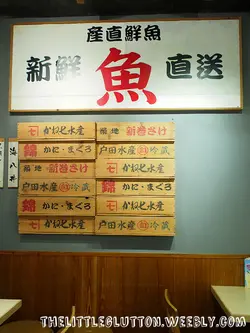 産直鮮魚
新鮮 魚 直送
七 かねせ水産
築地 新巻さけ
錦 かに・まぐろ
戸田水産 冷蔵
築地 新巻さけ
かに・まぐろ
戸田水産 冷蔵
七 かねせ水産
錦 かに・まぐろ
戸田水産 冷蔵
七 かねせ水産
THELITTLEGLUTTON.WEEBLY.COM